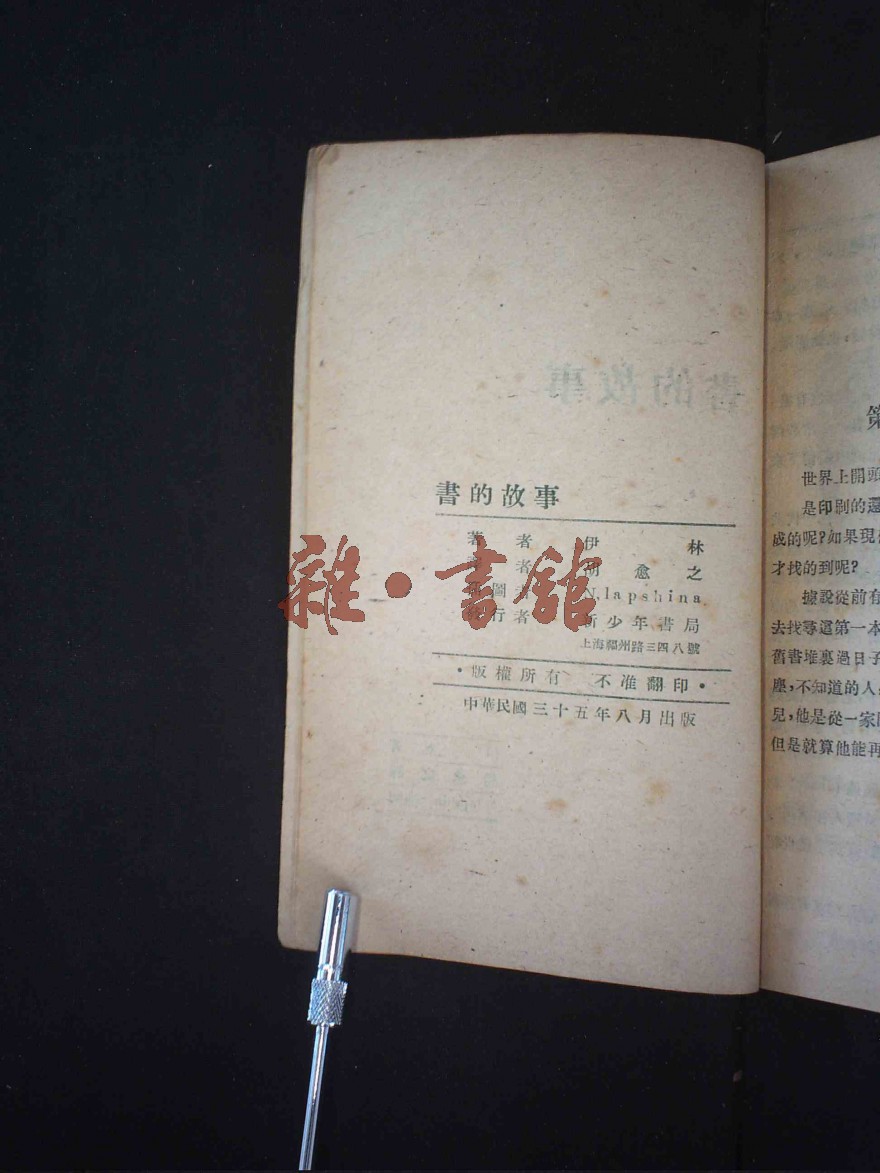 書的故事
著者 伊林
者 胡愈之
圖者 N.lapshina
行者 新少年書局
上海福州路三四八號
·版權所有 不准翻印·
中華民國三十五年八月出版
雜·書館
第
世界上開頭
是印刷的還
成的呢?如果現
才找的到呢?
據說從前有
去找尋這第一本
舊書堆裏過日子
塵,不知道的人
兒,他是從一家
但是就算他能再